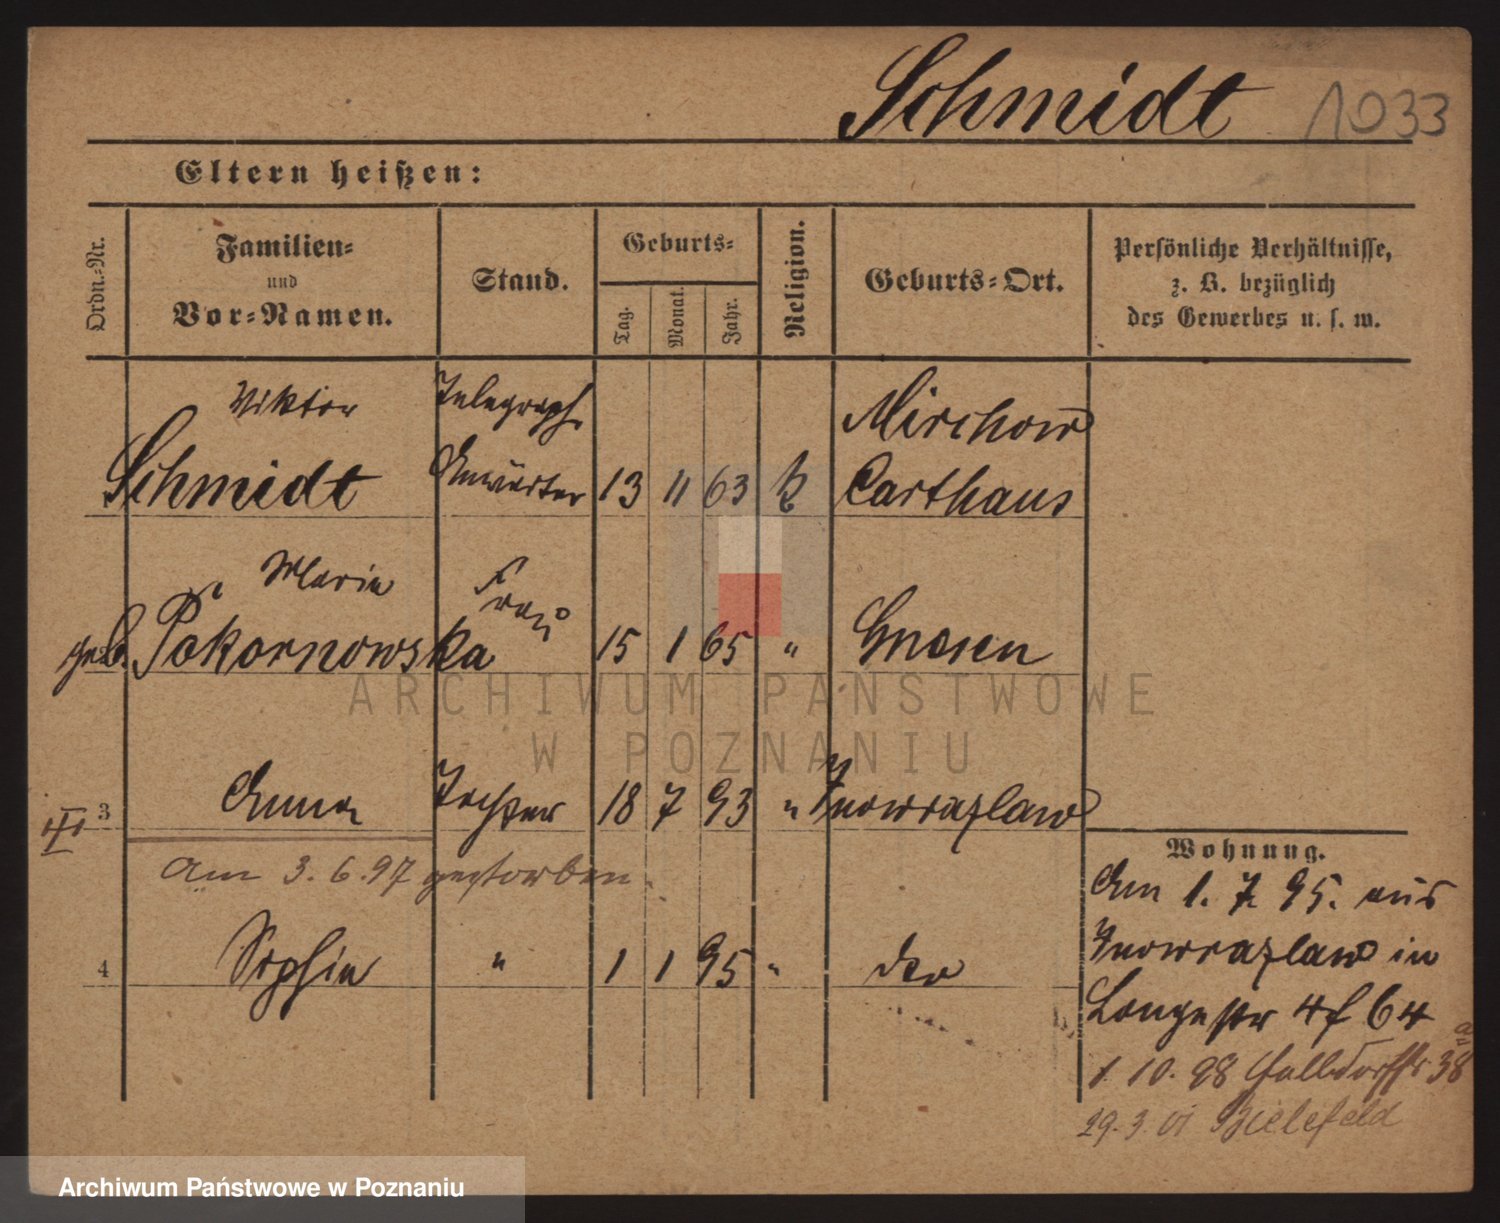 Schmidt 1033
Eltern heißen:
Ordn.=Nr.
Familien=
und
Vor=Namen.
Stand.
Geburts=
Tag.
Monat.
Jahr.
Religion.
Geburts=Ort.
Persönliche Verhältnisse,
z. B. bezüglich
des Gewerbes u. s. w.
Viktor Telegraph Mirchow
Schmidt Anwärter 13 11 63 k Carthaus
Maria Frau
geb. Pokornowska 15 1 65 " Gnesen
ARCHIWUM PAŃSTWOWE
W POZNANIU
III 3 Anna Tochter 18 7 93 " Inowrazlaw
Am 3. 6. 97 gestorben
4 Sophia " 1 1 95 " dto
Wohnung.
Am 1. 7. 95. aus
Inowrazlaw in
Langestr 4 f 64
1. 10. 98 38a
29. 3. 01 Bielefeld
Archiwum Państwowe w Poznaniu